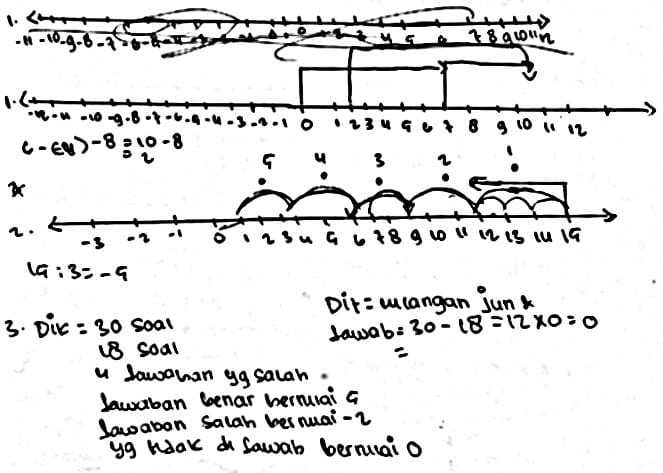 1.
-11 -10 -9 -8 -7
7 8 9 10 11 12
1.
-12 -11 -10 -9 -8 -7 -6 -9 -4 -3 -2 -1 0 1 2 3 4 5 6 7 8 9 10 11 12
-8 = 10 - 8
= 2
5 4 3 2 1
2. -3 -2 -1 0 1 2 3 4 5 6 7 8 9 10 11 12 13 14 15
15 : 3 = -5
3. Dik = 30 Soal
18 Soal
4 Jawaban yg salah
Jawaban benar bernilai 5
Jawaban salah bernilai -2
yg tidak di Jawab bernilai 0
Dit =
Jawab = 30 - 18 = 12 x 0 = 0
=